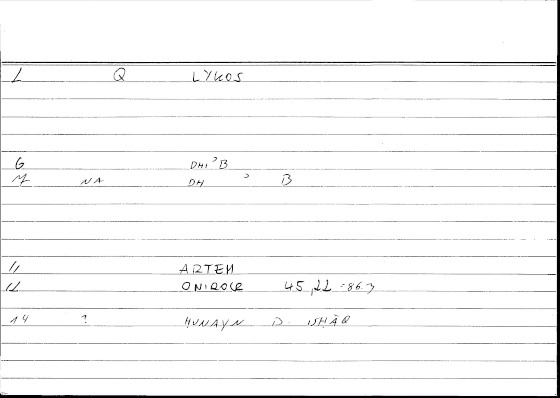 1 Q LYKOS
6 DHIʾB
7 NA DH ʾ B
11 ARTEM
12 ONIROCR 45,22 = 86.3
14 ? ḤUNAYN B. ISḤĀQ